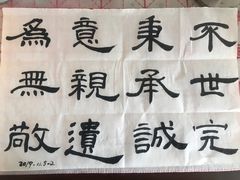 不世完
秉承誠
意親遺
爲無敬
2019.11.5-2